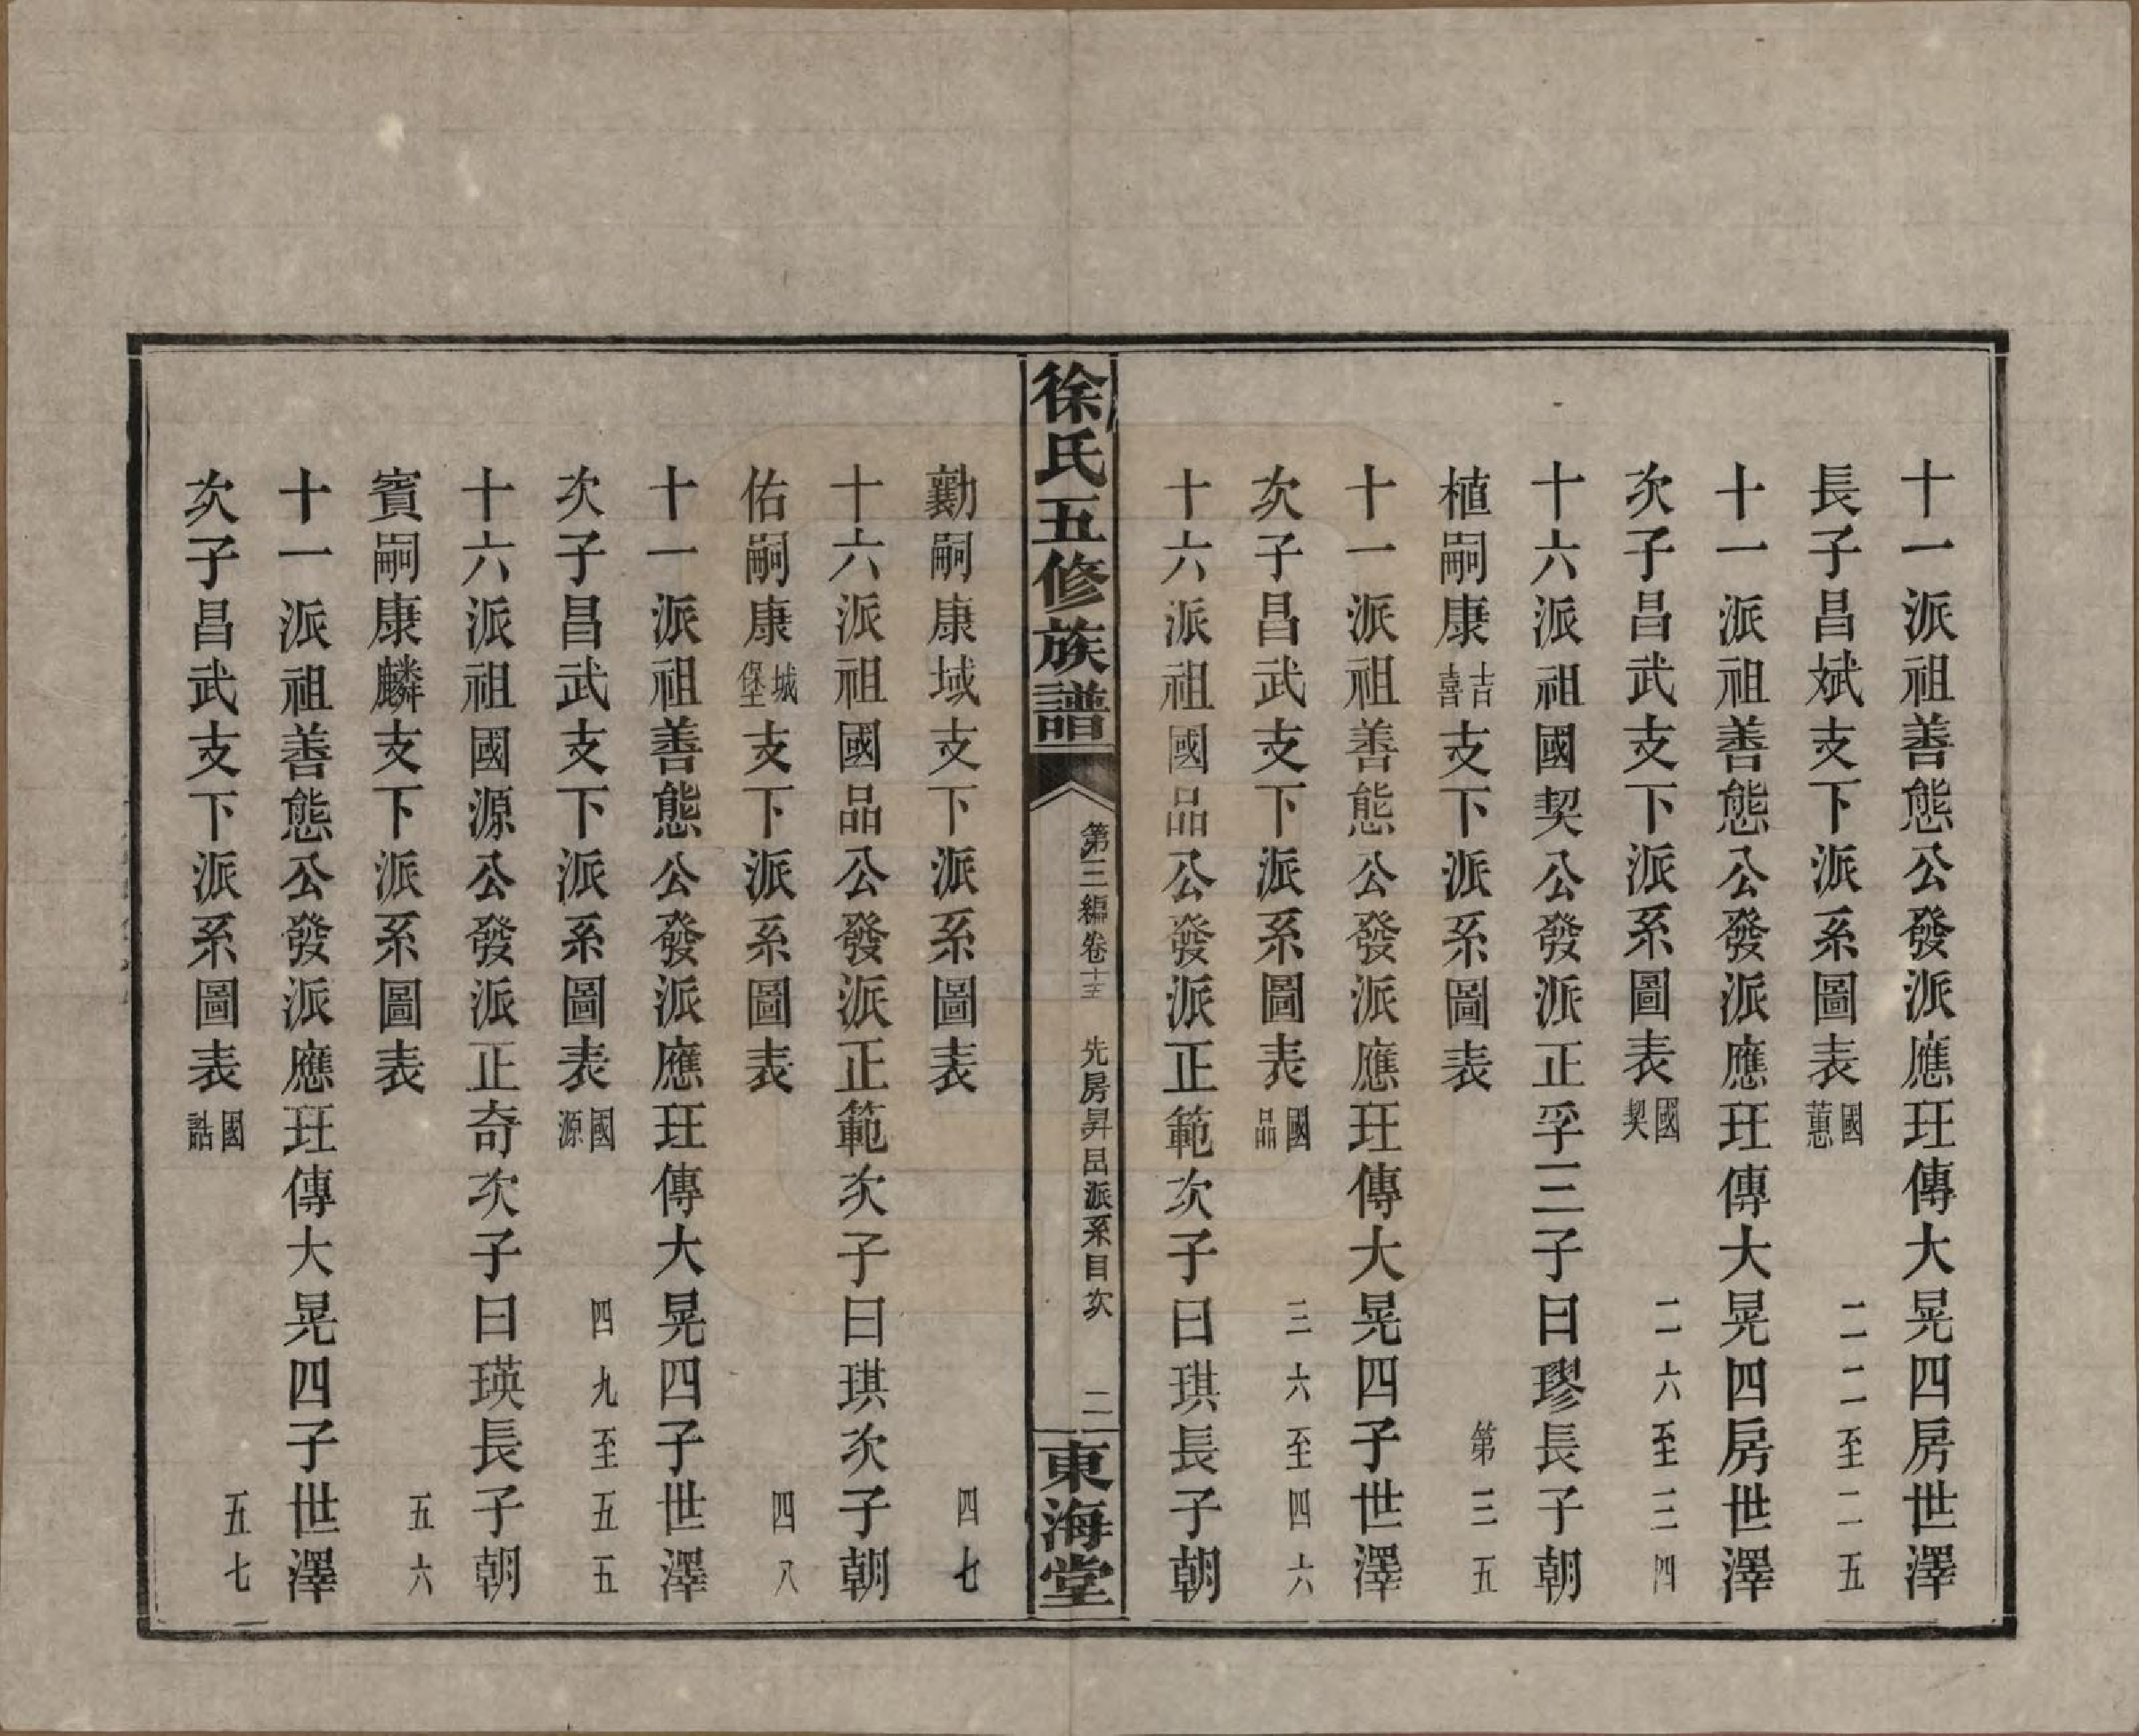 十一派祖善態公發派應玨傳大晃四房世澤
長子昌斌支下派系圖表國蕙　二二至二五
十一派祖善態公發派應玨傳大晃四房世澤
次子昌武支下派系圖表國契　二六至三四
十六派祖國契公發派正孚三子曰璆長子朝
植嗣康吉喜支下派系圖表　第三五
十一派祖善態公發派應玨傳大晃四子世澤
次子昌武支下派系圖表國品　三六至四六
十六派祖國品公發派正範次子曰琪長子朝
徐氏五修族譜
第三編卷十三　先房昇昌派系目次　二
東海堂
勷嗣康域支下派系圖表　四七
十六派祖國品公發派正範次子曰琪次子朝
佑嗣康城堡支下派系圖表　四八
十一派祖善態公發派應玨傳大晃四子世澤
次子昌武支下派系圖表國源　四九至五五
十六派祖國源公發派正奇次子曰瑛長子朝
賓嗣康麟支下派系圖表　五六
十一派祖善態公發派應玨傳大晃四子世澤
次子昌武支下派系圖表國誥　五七